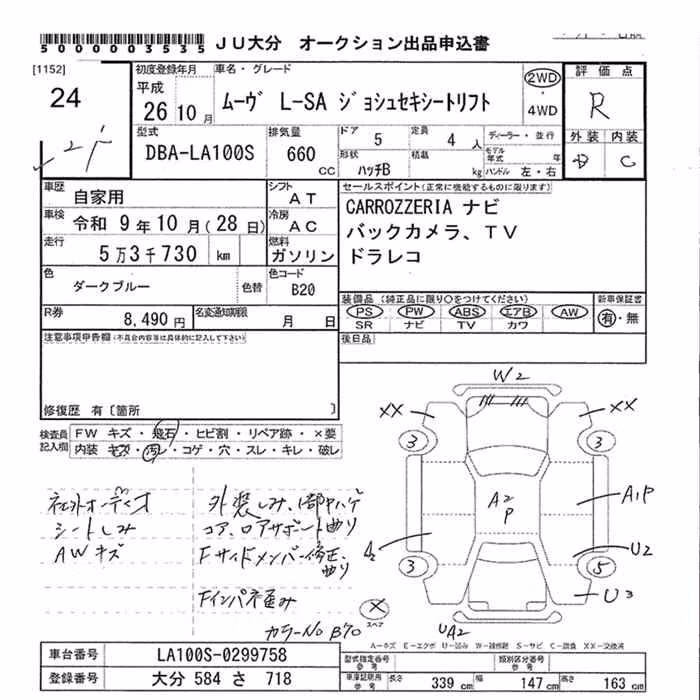 5000003535
JU大分 オークション出品申込書
[1152]
24
初度登録年月
平成
26 10 月
車名・グレード
ムーヴ L-SA ジョシュセキシートリフト
2WD
・
4WD
評価点
R
外装 内装
D C
型式
DBA-LA100S
排気量
660 CC
ドア
5
定員
4 人
形状
ハッチB
積載
kg
ディーラー・並行
モデル年式 年
ハンドル 左・右
車歴
自家用
シフト
AT
車検
令和 9年10月(28日)
冷房
AC
走行
5万3千730 km
燃料
ガソリン
色
ダークブルー
色替
色コード
B20
R券
8,490円
名変通知期限
月 日
セールスポイント(正常に機能するものに限ります)
CARROZZERIA ナビ
バックカメラ、TV
ドラレコ
装備品(純正品に限り○をつけてください)
PS・PW・ABS・エアB・AW
SR ナビ TV カワ
新車保証書
有・無
後日品
注意事項申告欄(不具合内容等は具体的に記入して下さい)
修復歴 有〔箇所 〕
検査員記入欄
FW キズ・飛石・ヒビ割・リペア跡・×要
内装 キズ・汚レ・コゲ・穴・スレ・キレ・破レ
社外オーディオ
シートしみ
AWキズ
外装しみ、1部ハゲ
コア、ロアサポート曲り
Fサイドメンバー修正、
曲り
Fインパネ歪み
カラーNo B70
W2
XX
XX
3
3
A2
P
A1P
U2
3
5
U3
UA2
スペア
A-キズ E-エクボ U-凹み W-補修跡 S-サビ C-腐食 XX-交換済
車台番号
LA100S-0299758
登録番号
大分 584 さ 718
型式指定番号
参考
類別区分番号
参考
車庫証明用
参考
長さ
339 cm
幅
147 cm
高さ
163 cm